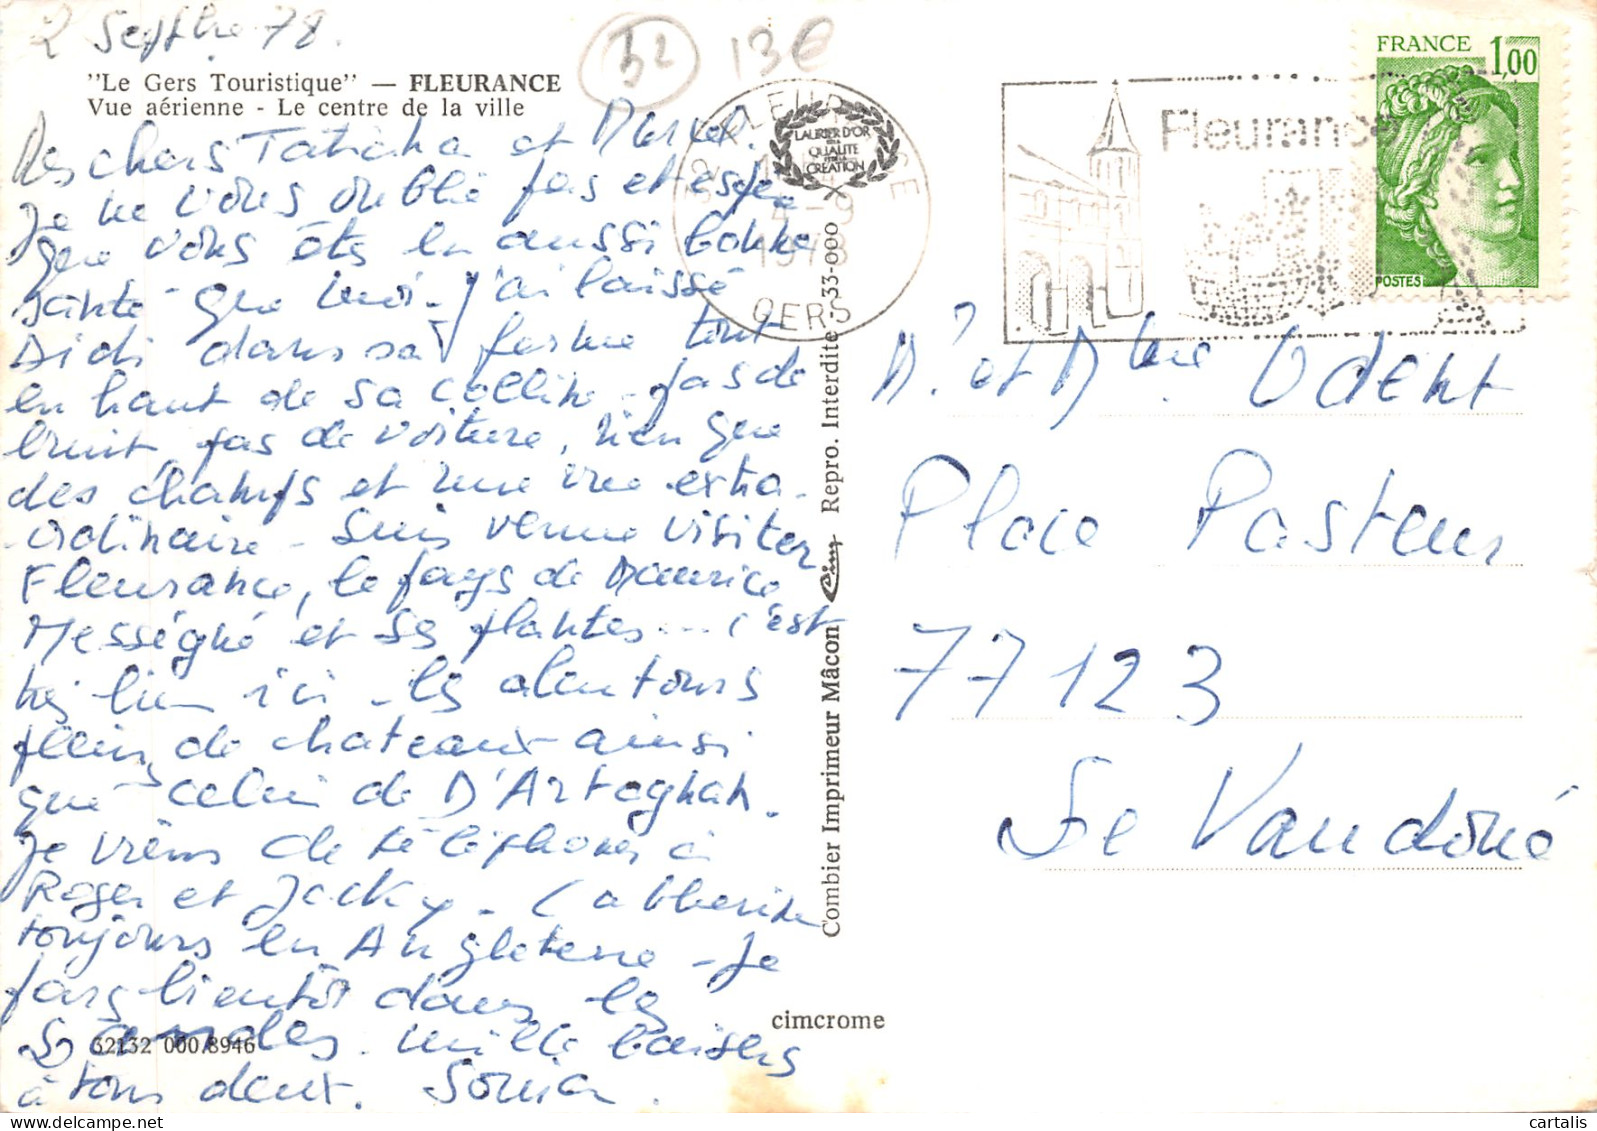 2 Septbre 78.
"Le Gers Touristique" — FLEURANCE
Vue aérienne - Le centre de la ville
Mes chers Tatcha et Marcel.
Je ne vous oublie pas et espère
que vous êtes en aussi bonne
santé que moi - j'ai laissé
Didi dans sa ferme tout
en haut de sa colline - pas de
bruit, pas de voiture, rien que
des champs et une vue extra-
-ordinaire - Suis venue visiter
Fleurance, le pays de Maurice
Mességué et ses plantes... c'est
très bien ici - les alentours
pleins de chateaux ainsi
que celui de D'Artagnan.
Je viens de téléphoner à
Roger et Jacky - Catherine
toujours en Angleterre - Je
pars bientôt dans les
Landes. mille baisers
à tous deux. Sonia.
32132 000.8946
cimcrome
Combier Imprimeur Mâcon Cim Repro. Interdite 33-000
52
13€
LAURIER D'OR
DE LA
QUALITÉ
ET DE LA
CRÉATION
32 FLEURANCE
4-9
1978
GERS
Fleurance
FRANCE 1,00
POSTES
M. et Mme Odent
Place Pasteur
77123
Le Vaudoué
cartalis